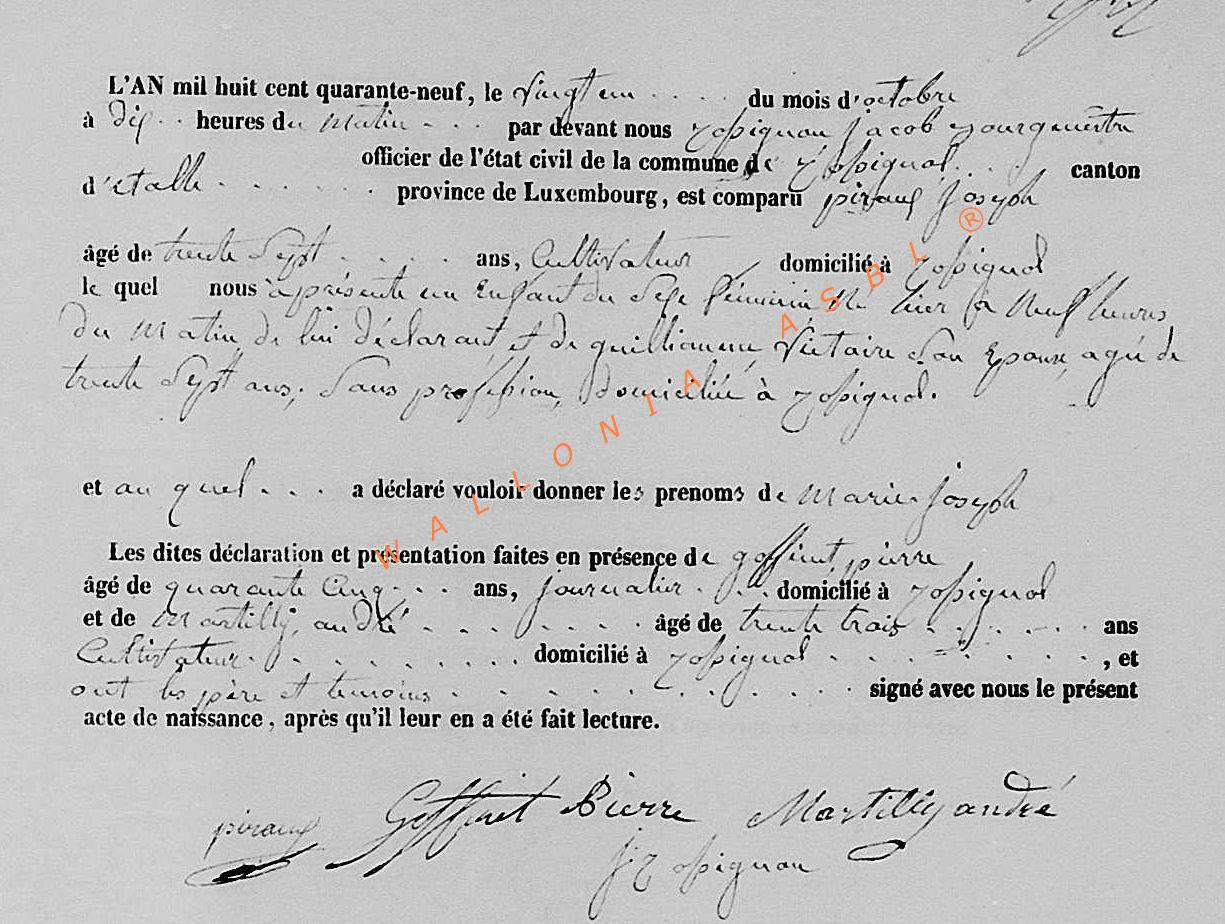 L'AN mil huit cent quarante-neuf, le vingt un . . . . du mois d'octobre
à dix . . heures du matin - . . par devant nous Rossignon Jacob Bourguemestre
officier de l'état civil de la commune de Rossignol . . . canton
d'etalle . . . . . . province de Luxembourg, est comparu piraux Joseph
âgé de trente Sept . . . . ans, Cultivateur domicilié à Rossignol
le quel nous a présenté un Enfant du Sexe féminin Né hier à Neuf heures
du Matin, de lui déclarant et de guillaume, Victoire Son Epouse, agée de
trente Sept ans, Sans profession, domiciliée à Rossignol.
et au quel . . . a déclaré vouloir donner les prenoms de Marie Joseph
Les dites déclaration et présentation faites en présence de goffinet, pierre
âgé de quarante Cinq . . ans, journalier . . . domicilié à Rossignol
et de Martilly, andré . . . . . . . âgé de trente trois . . . . . . ans
Cultivateur . . . . . . . . . domicilié à Rossignol . . . . . . . . , et
ont les père et temoins . . . . . . . . . . . . signé avec nous le présent
acte de naissance, après qu'il leur en a été fait lecture.
piraux Goffinet Pierre Martilly andré
J Rossignon
WALLONIA ASBL ®